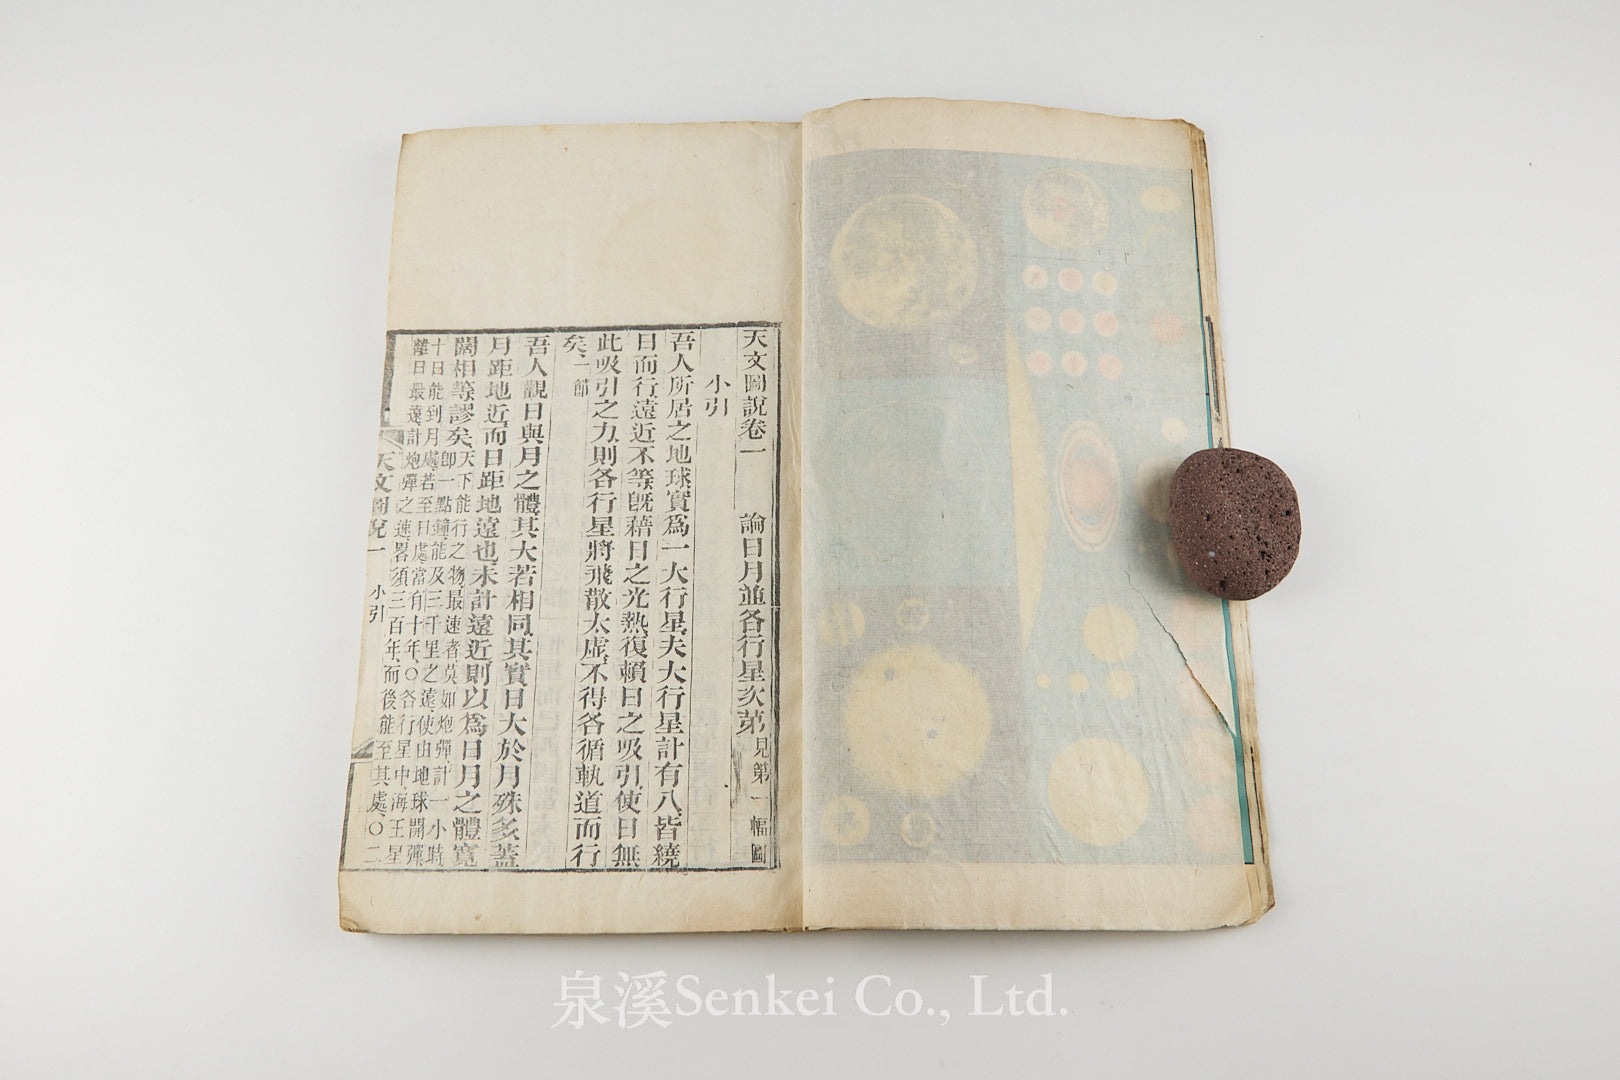 天文圖說卷一　論日月並各行星次第見第一幅圖
小引
吾人所居之地球實爲一大行星、夫大行星計有八、皆繞
日而行、遠近不等、旣藉日之光熱、復賴日之吸引、使日無
此吸引之力、則各行星將飛散太虛、不得各循軌道而行
矣、一節
吾人觀日與月之體、其大若相同、其實日大於月殊多、蓋
月距地近、而日距地遠也、未計遠近、則以爲日月之體寬
闊相等、謬矣、天下能行之物、最速者莫如炮彈、計一小時
卽一點鐘、能及三千里之遠、使由地球開彈
十日能到月處、若至日處、當有十年、〇各行星中、海王星
離日最遠、計炮彈之速、畧須三百年、而後能至其處、〇二
天文圖說一　小引
泉溪Senkei Co., Ltd.